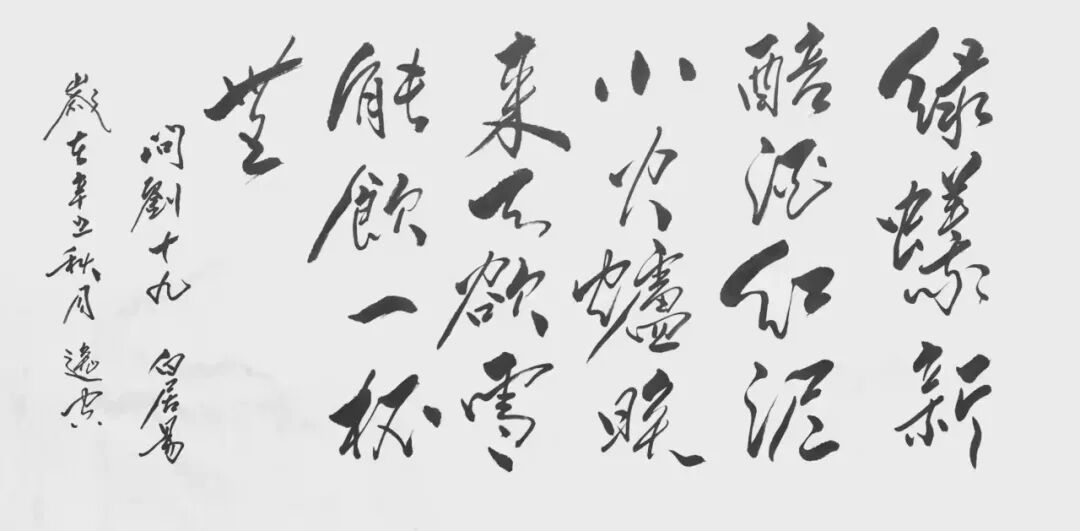 綠蟻新
醅酒紅泥
小火爐晚
來天欲雪
能飲一杯
無
問劉十九 白居易
歲在辛丑秋月